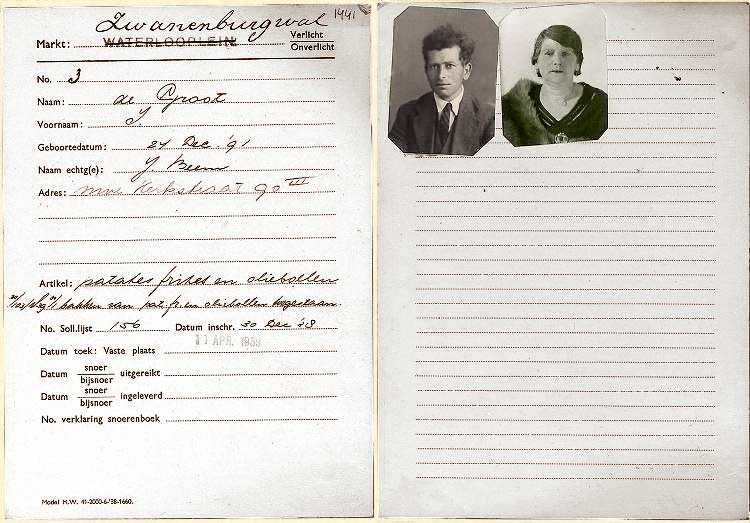 Zwanenburgwal 1941
Markt: WATERLOOPLEIN Verlicht
Onverlicht
No. 3
Naam: de Groot
Voornaam: I.
Geboortedatum: 24 Dec. '91
Naam echtg(e): J. Beem
Adres: nwe Kerkstraat 90 III
Artikel: patates frites en oliebollen
bakken van pat. fr. en oliebollen toegestaan.
No. Soll.lijst 156 Datum inschr. 30 Dec '38
11 APR. 1939
Datum toek: Vaste plaats
Datum snoer/bijsnoer uitgereikt
Datum snoer/bijsnoer ingeleverd
No. verklaring snoerenboek
Model M.W. 41-2000-6/'38-1660.